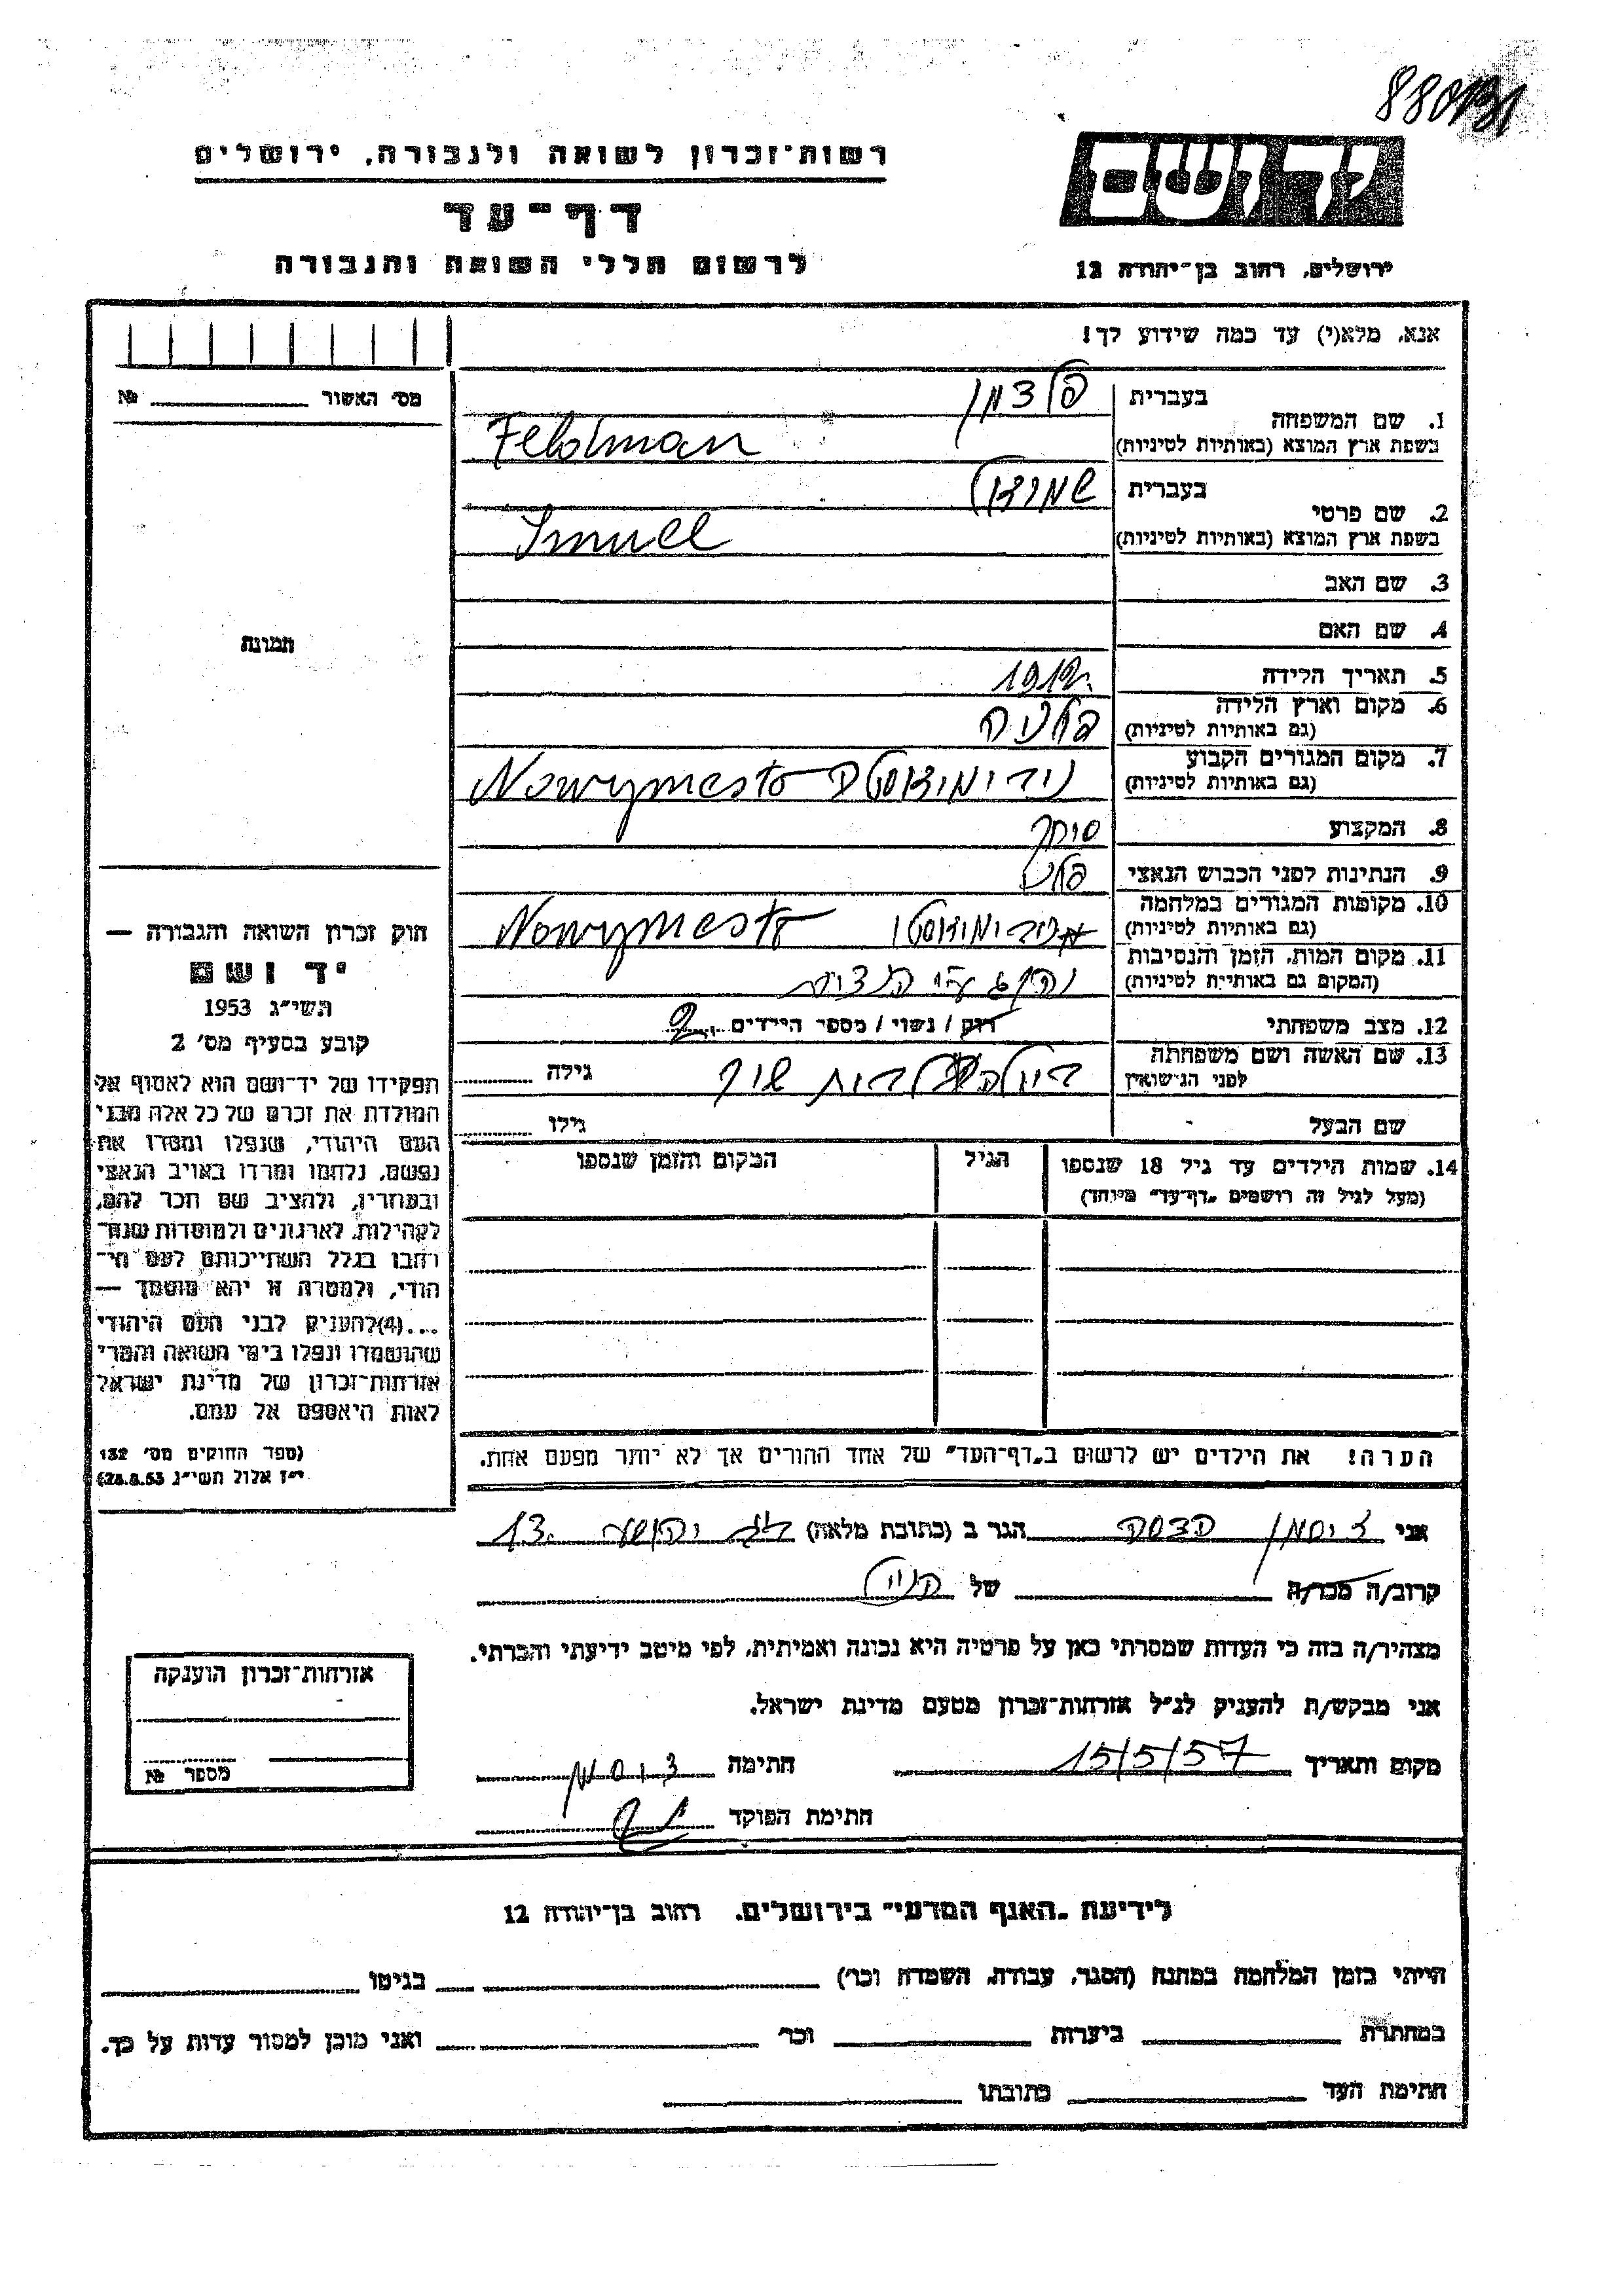 רשות־זכרון לשואה ולגבורה, ירושלים
דף־עד
לרשום חללי השואה והגבורה
יד ושם
ירושלים, רחוב בן־יהודה 12
אנא, מלא(י) עד כמה שידוע לך!
מס׳ האשור № 
תמונה
1. שם המשפחה
בעברית פלדמן
בשפת ארץ המוצא (באותיות לטיניות) Feldman
2. שם פרטי
בעברית שמואל
בשפת ארץ המוצא (באותיות לטיניות) Smuel
3. שם האב
4. שם האם
5. תאריך הלידה
6. מקום וארץ הלידה
(גם באותיות לטיניות) פולניה
7. מקום המגורים הקבוע
(גם באותיות לטיניות) Nowymesto
8. המקצוע סוחר
9. הנתינות לפני הכבוש הנאצי פולני
10. מקומות המגורים במלחמה
(גם באותיות לטיניות) Nowymesto
11. מקום המות, הזמן והנסיבות
(המקום גם באותיות לטיניות) נהרג ע״י הנאצים
12. מצב משפחתי רוק / נשוי / מספר הילדים 2
13. שם האשה ושם משפחתה
לפני הנישואין גילה
שם הבעל גילו
14. שמות הילדים עד גיל 18 שנספו הגיל המקום והזמן שנספו
(מעל לגיל זה רושמים „דף־עד״ מיוחד)
הערה! את הילדים יש לרשום ב„דף־העד״ של אחד ההורים אך לא יותר מפעם אחת.
חוק זכרון השואה והגבורה —
יד ושם
תשי״ג 1953
קובע בסעיף מס׳ 2
תפקידו של יד־ושם הוא לאסוף אל
המולדת את זכרם של כל אלה מבני
העם היהודי, שנפלו ומסרו את
נפשם, נלחמו ומרדו באויב הנאצי
ובעוזריו, ולהציב שם וזכר להם,
לקהילות, לארגונים ולמוסדות שנח־
רבו בגלל השתייכותם לעם הי־
הודי, ולמטרה זו יהא מוסמך —
...(4)להעניק לבני העם היהודי
שהושמדו ונפלו בימי השואה והמרי
אזרחות־זכרון של מדינת ישראל
לאות היאספם אל עמם.
(ספר החוקים מס׳ 132
י״ז אלול תשי״ג 28.8.53)
אני זיסמן הדסה הגר ב (כתובת מלאה) 13
קרוב/ה מכר/ה של הנ״ל
מצהיר/ה בזה כי העדות שמסרתי כאן על פרטיה היא נכונה ואמיתית, לפי מיטב ידיעתי והכרתי.
אני מבקש/ת להעניק לנ״ל אזרחות־זכרון מטעם מדינת ישראל.
מקום ותאריך 15/5/57 חתימה
חתימת הפוקד
אזרחות־זכרון הוענקה
מספר №
לידיעת „האגף המדעי״ בירושלים, רחוב בן־יהודה 12
הייתי בזמן המלחמה במחנה (הסגר, עבודה, השמדה וכו׳) בגיטו
במחתרת ביערות וכו׳ ואני מוכן למסור עדות על כך.
חתימת העד כתובתו